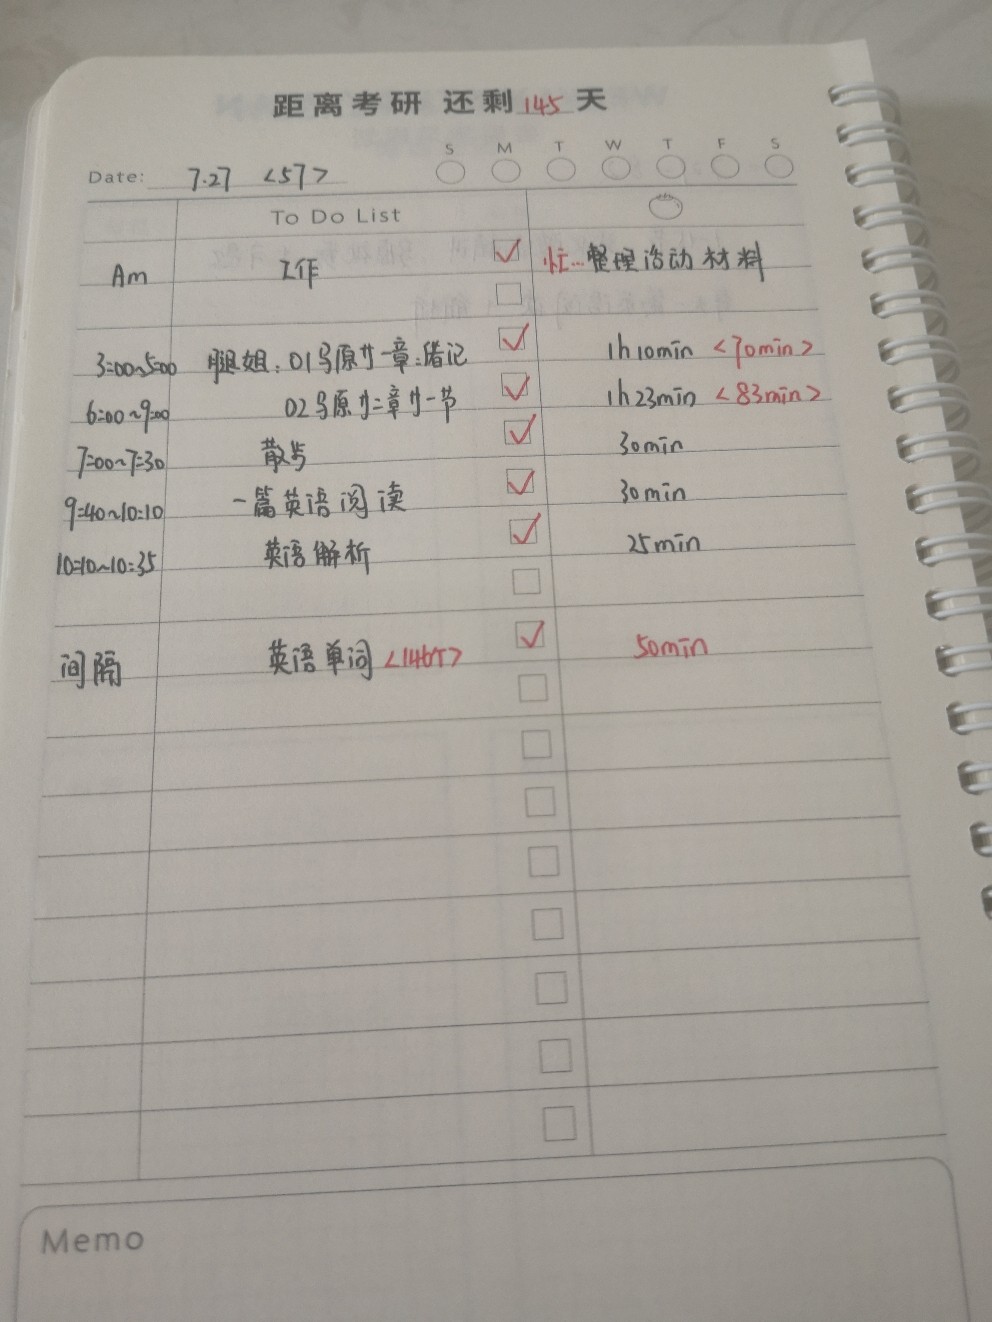 距离考研 还剩 145 天
S M T W T F S
Date: 7.27 <57>
To Do List
Am 工作 忙... 整理活动材料
3:00~5:00 腿姐: 01马原第一章:错记 1h 10min <70min>
6:00~9:00 02马原第二章第一节 1h 23min <83min>
7:00~7:30 散步 30min
9:40~10:10 一篇英语阅读 30min
10:10~10:35 英语解析 25min
间隔 英语单词 50min
Memo